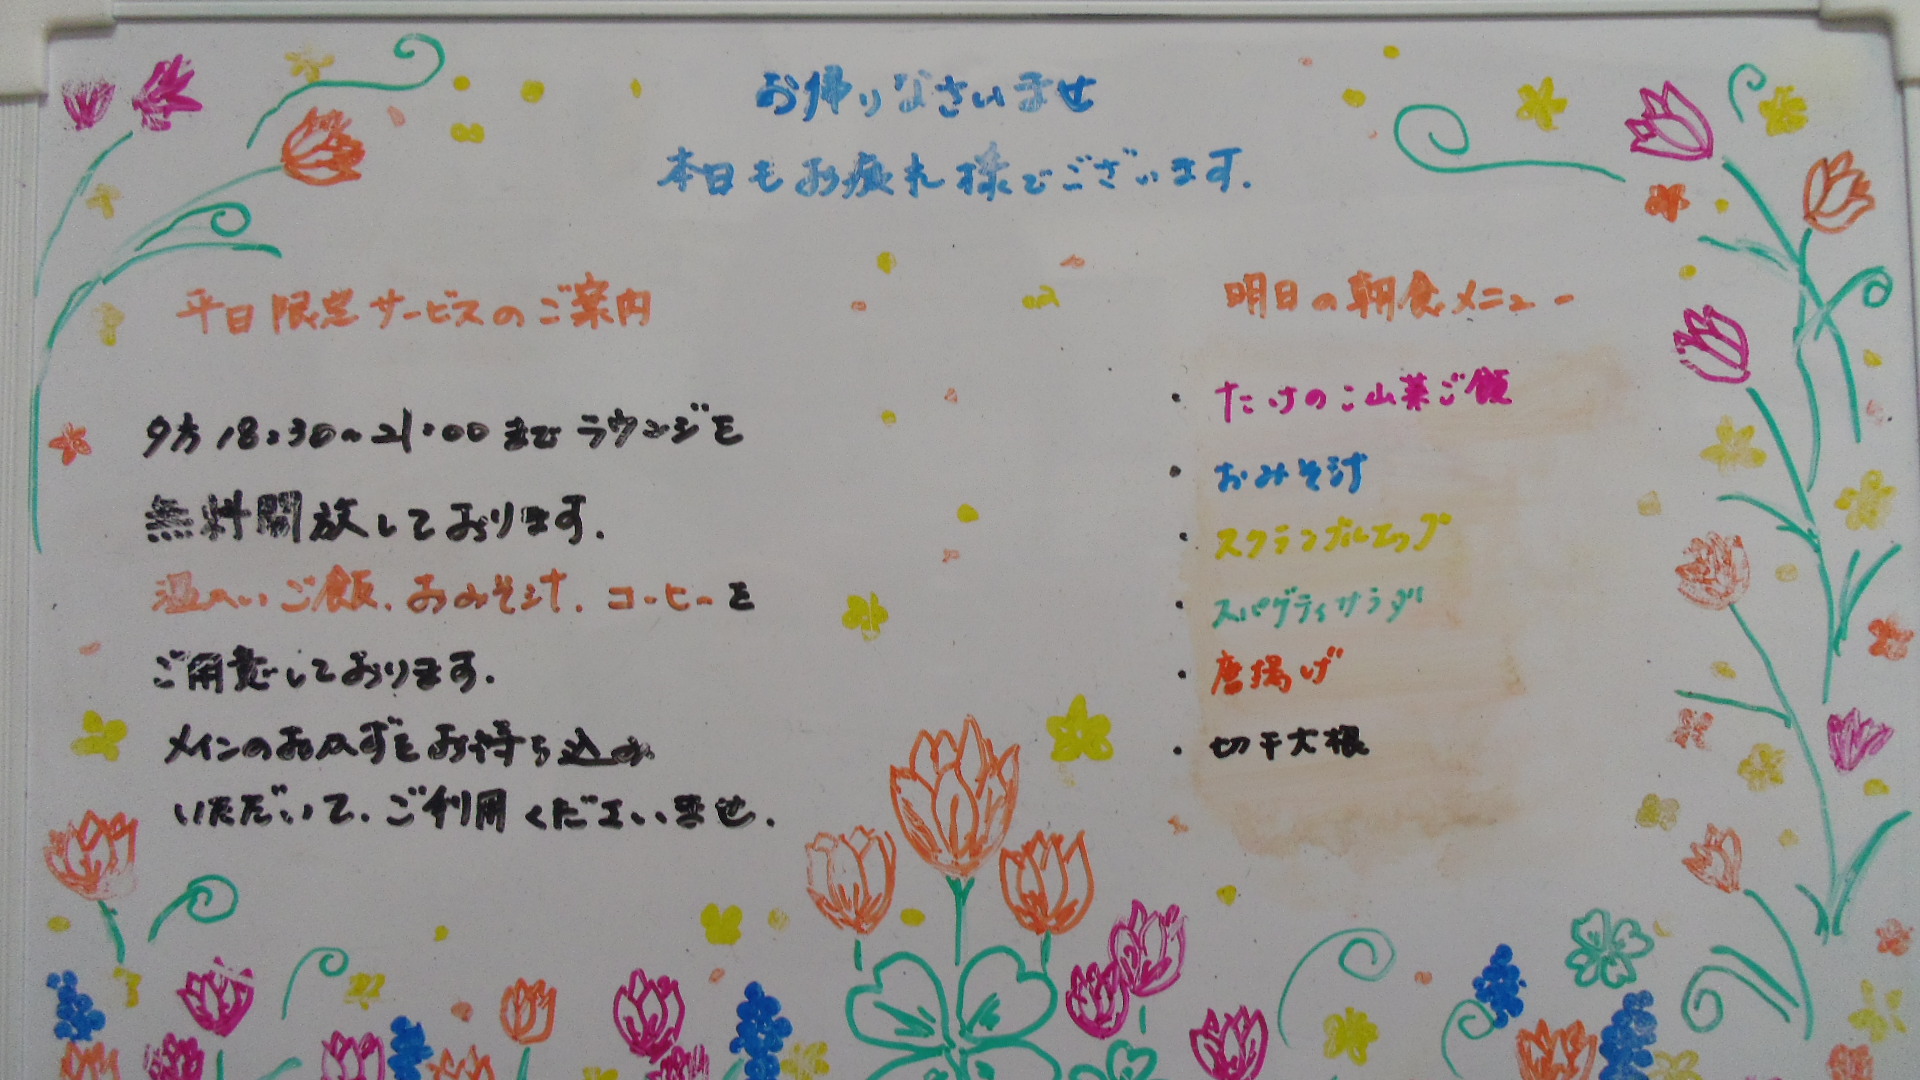 お帰りなさいませ
本日もお疲れ様でございます.
平日限定サービスのご案内
夕方18:30~21:00までラウンジを
無料開放しております.
温かいご飯.おみそ汁.コーヒーを
ご用意しております.
メインのおかずをお持ち込み
いただいて、ご利用くださいませ.
明日の朝食メニュー
・たけのこ山菜ご飯
・おみそ汁
・スクランブルエッグ
・スパゲティサラダ
・唐揚げ
・切干大根